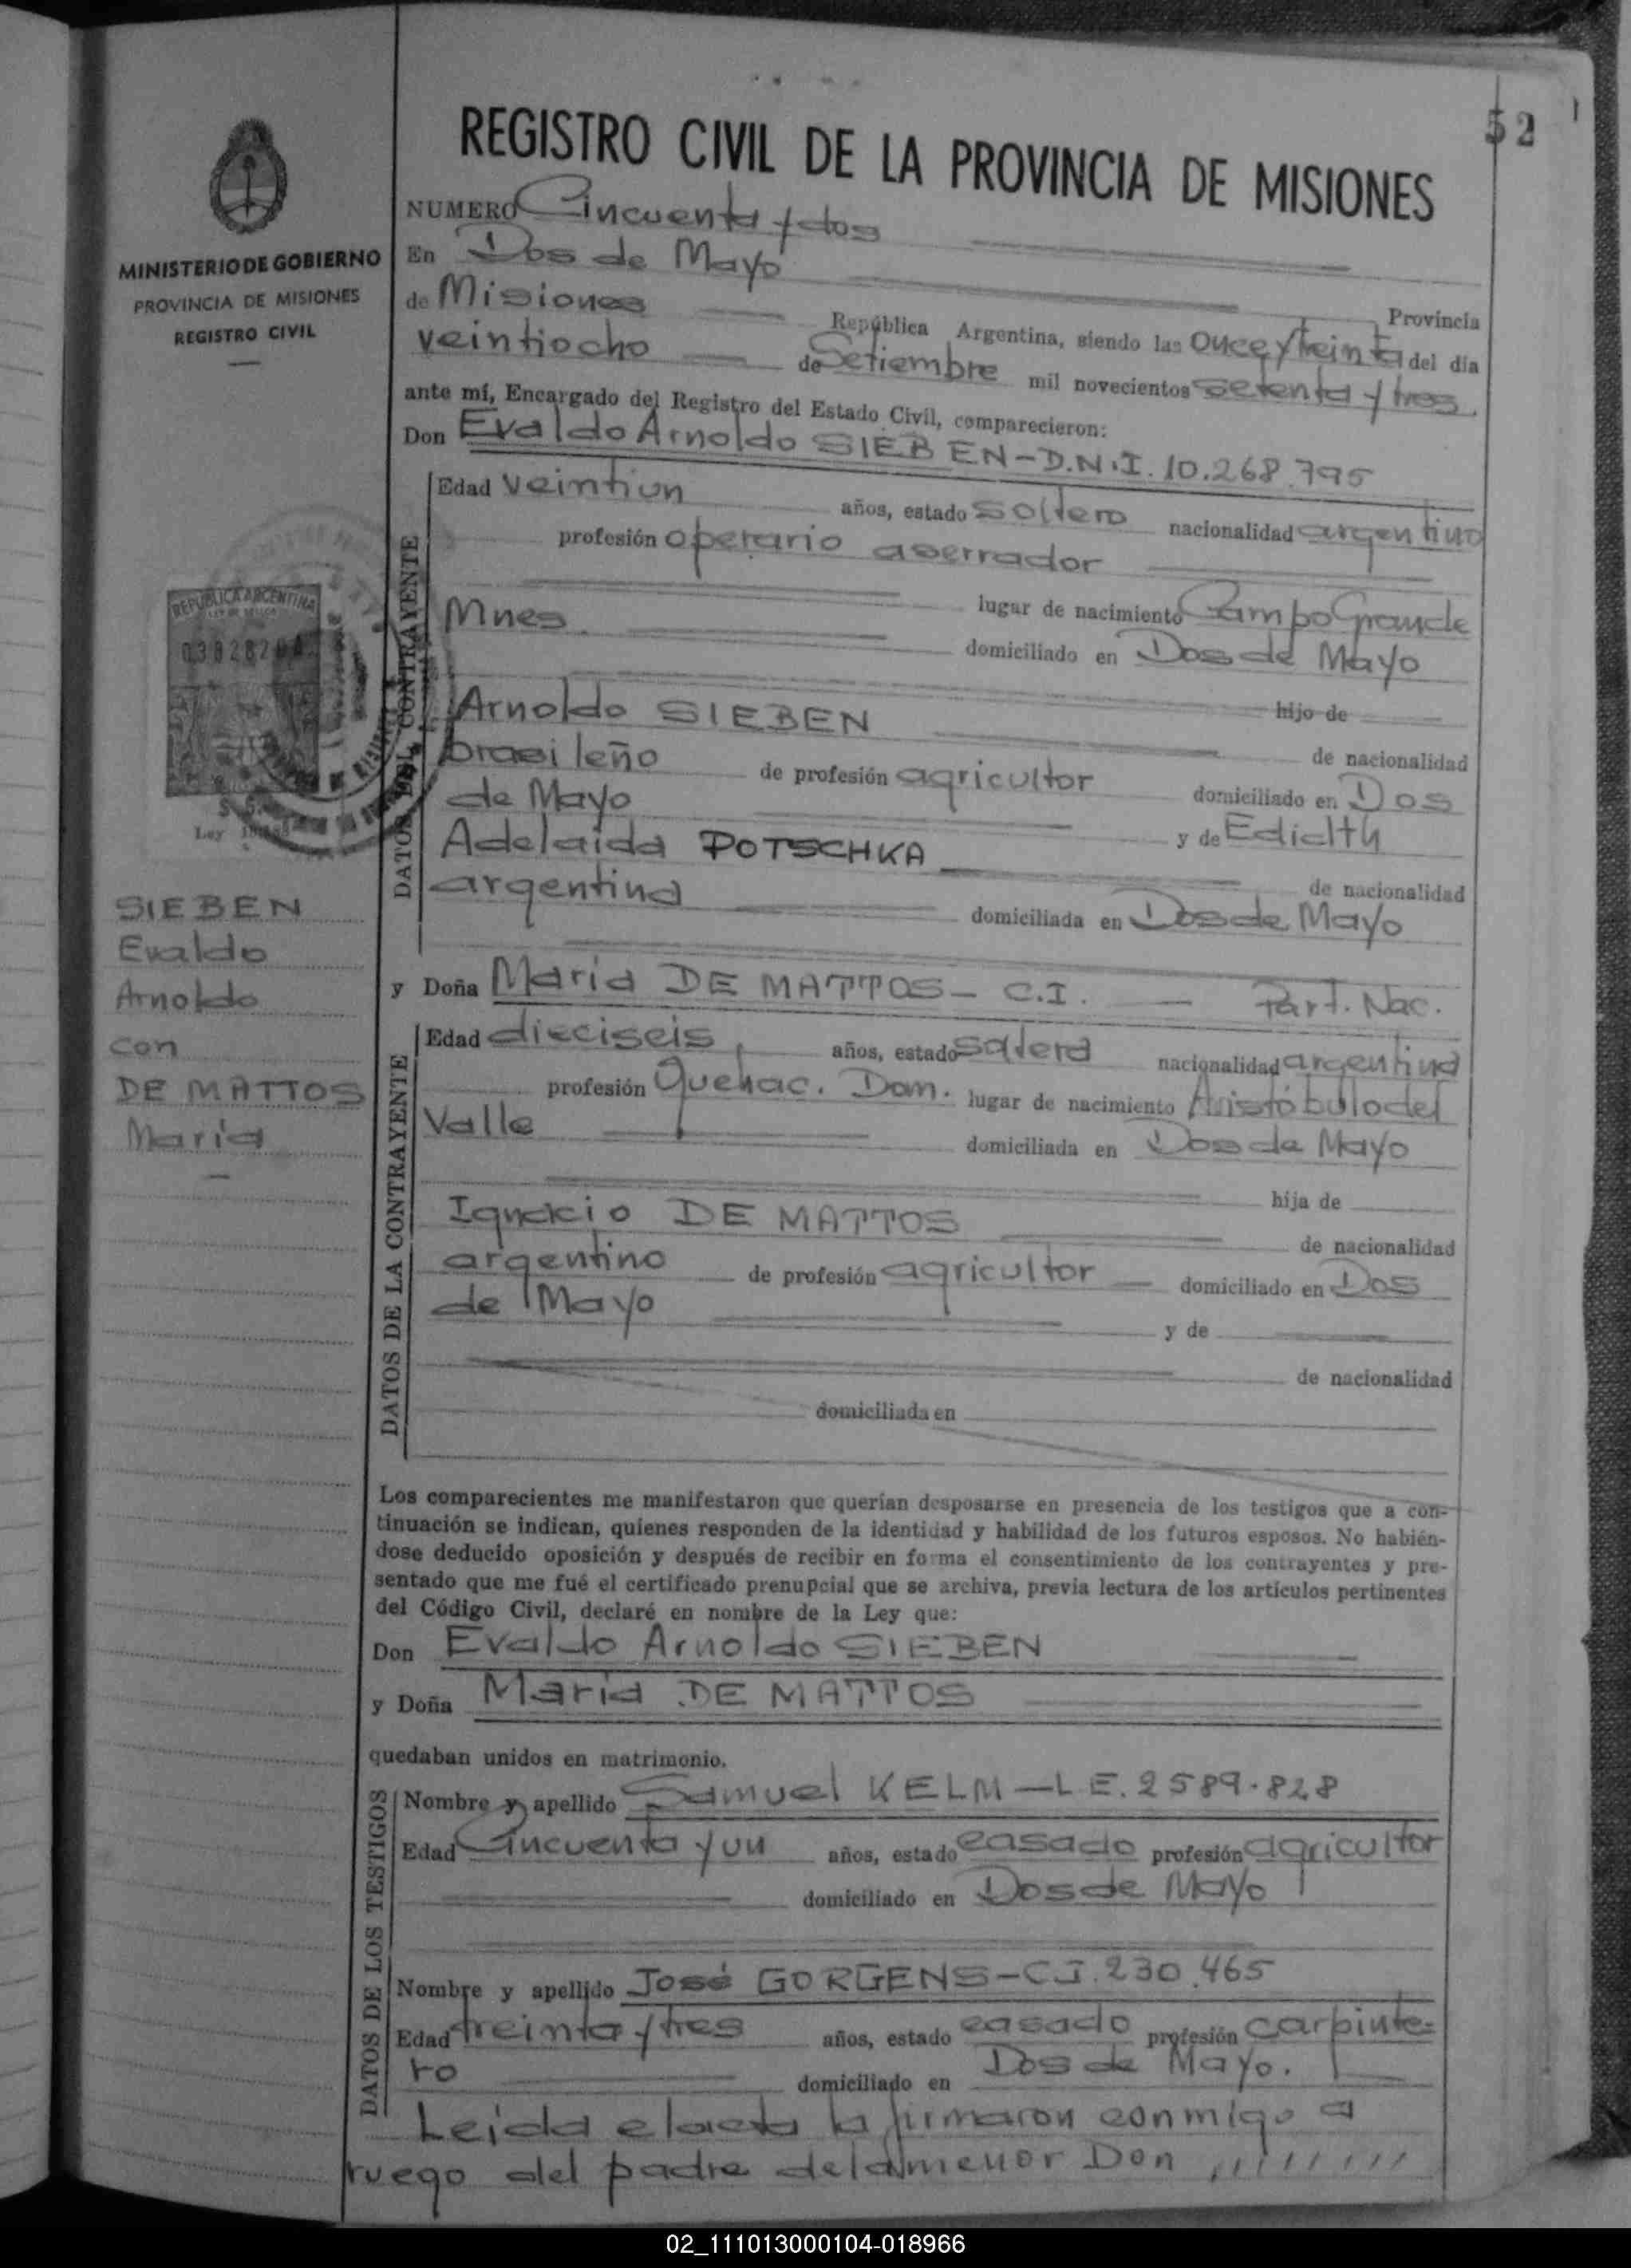 52
REGISTRO CIVIL DE LA PROVINCIA DE MISIONES
MINISTERIO DE GOBIERNO
PROVINCIA DE MISIONES
REGISTRO CIVIL
NUMERO Cincuenta y dos
En Dos de Mayo
Provincia
de Misiones República Argentina, siendo las Once y treinta del día
veintiocho de Setiembre mil novecientos setenta y tres
ante mí, Encargado del Registro del Estado Civil, comparecieron:
Don Evaldo Arnoldo SIEBEN - D.N.I. 10.268.795
DATOS DEL CONTRAYENTE
Edad veintiun años, estado soltero nacionalidad argentino
profesión operario aserrador
lugar de nacimiento Campo Grande
Mnes domiciliado en Dos de Mayo
hijo de
Arnoldo SIEBEN de nacionalidad
brasileño de profesión agricultor domiciliado en Dos
de Mayo y de Edialth
Adelaida POTSCHKA de nacionalidad
argentina domiciliada en Dos de Mayo
REPUBLICA ARGENTINA
Ley
SIEBEN
Evaldo
Arnoldo
con
DE MATTOS
Maria
y Doña Maria DE MATTOS - C.I. — Part. Nac.
DATOS DE LA CONTRAYENTE
Edad dieciseis años, estado soltera nacionalidad argentina
profesión Quehac. Dom. lugar de nacimiento Aristóbulo del
Valle domiciliada en Dos de Mayo
hija de
Ignacio DE MATTOS de nacionalidad
argentino de profesión agricultor domiciliado en Dos
de Mayo y de
de nacionalidad
domiciliada en
Los comparecientes me manifestaron que querían desposarse en presencia de los testigos que a con-
tinuación se indican, quienes responden de la identidad y habilidad de los futuros esposos. No habién-
dose deducido oposición y después de recibir en forma el consentimiento de los contrayentes y pre-
sentado que me fué el certificado prenupcial que se archiva, previa lectura de los artículos pertinentes
del Código Civil, declaré en nombre de la Ley que:
Don Evaldo Arnoldo SIEBEN
y Doña Maria DE MATTOS
quedaban unidos en matrimonio.
DATOS DE LOS TESTIGOS
Nombre y apellido Samuel KELM — L E. 2589.828
Edad Cincuenta y un años, estado casado profesión agricultor
domiciliado en Dos de Mayo
Nombre y apellido José GORGENS - C.I. 230.465
Edad treinta y tres años, estado casado profesión carpinte=
ro domiciliado en Dos de Mayo.
Leida el acta la firmaron conmigo a
ruego del padre de la menor Don
02_111013000104-018966